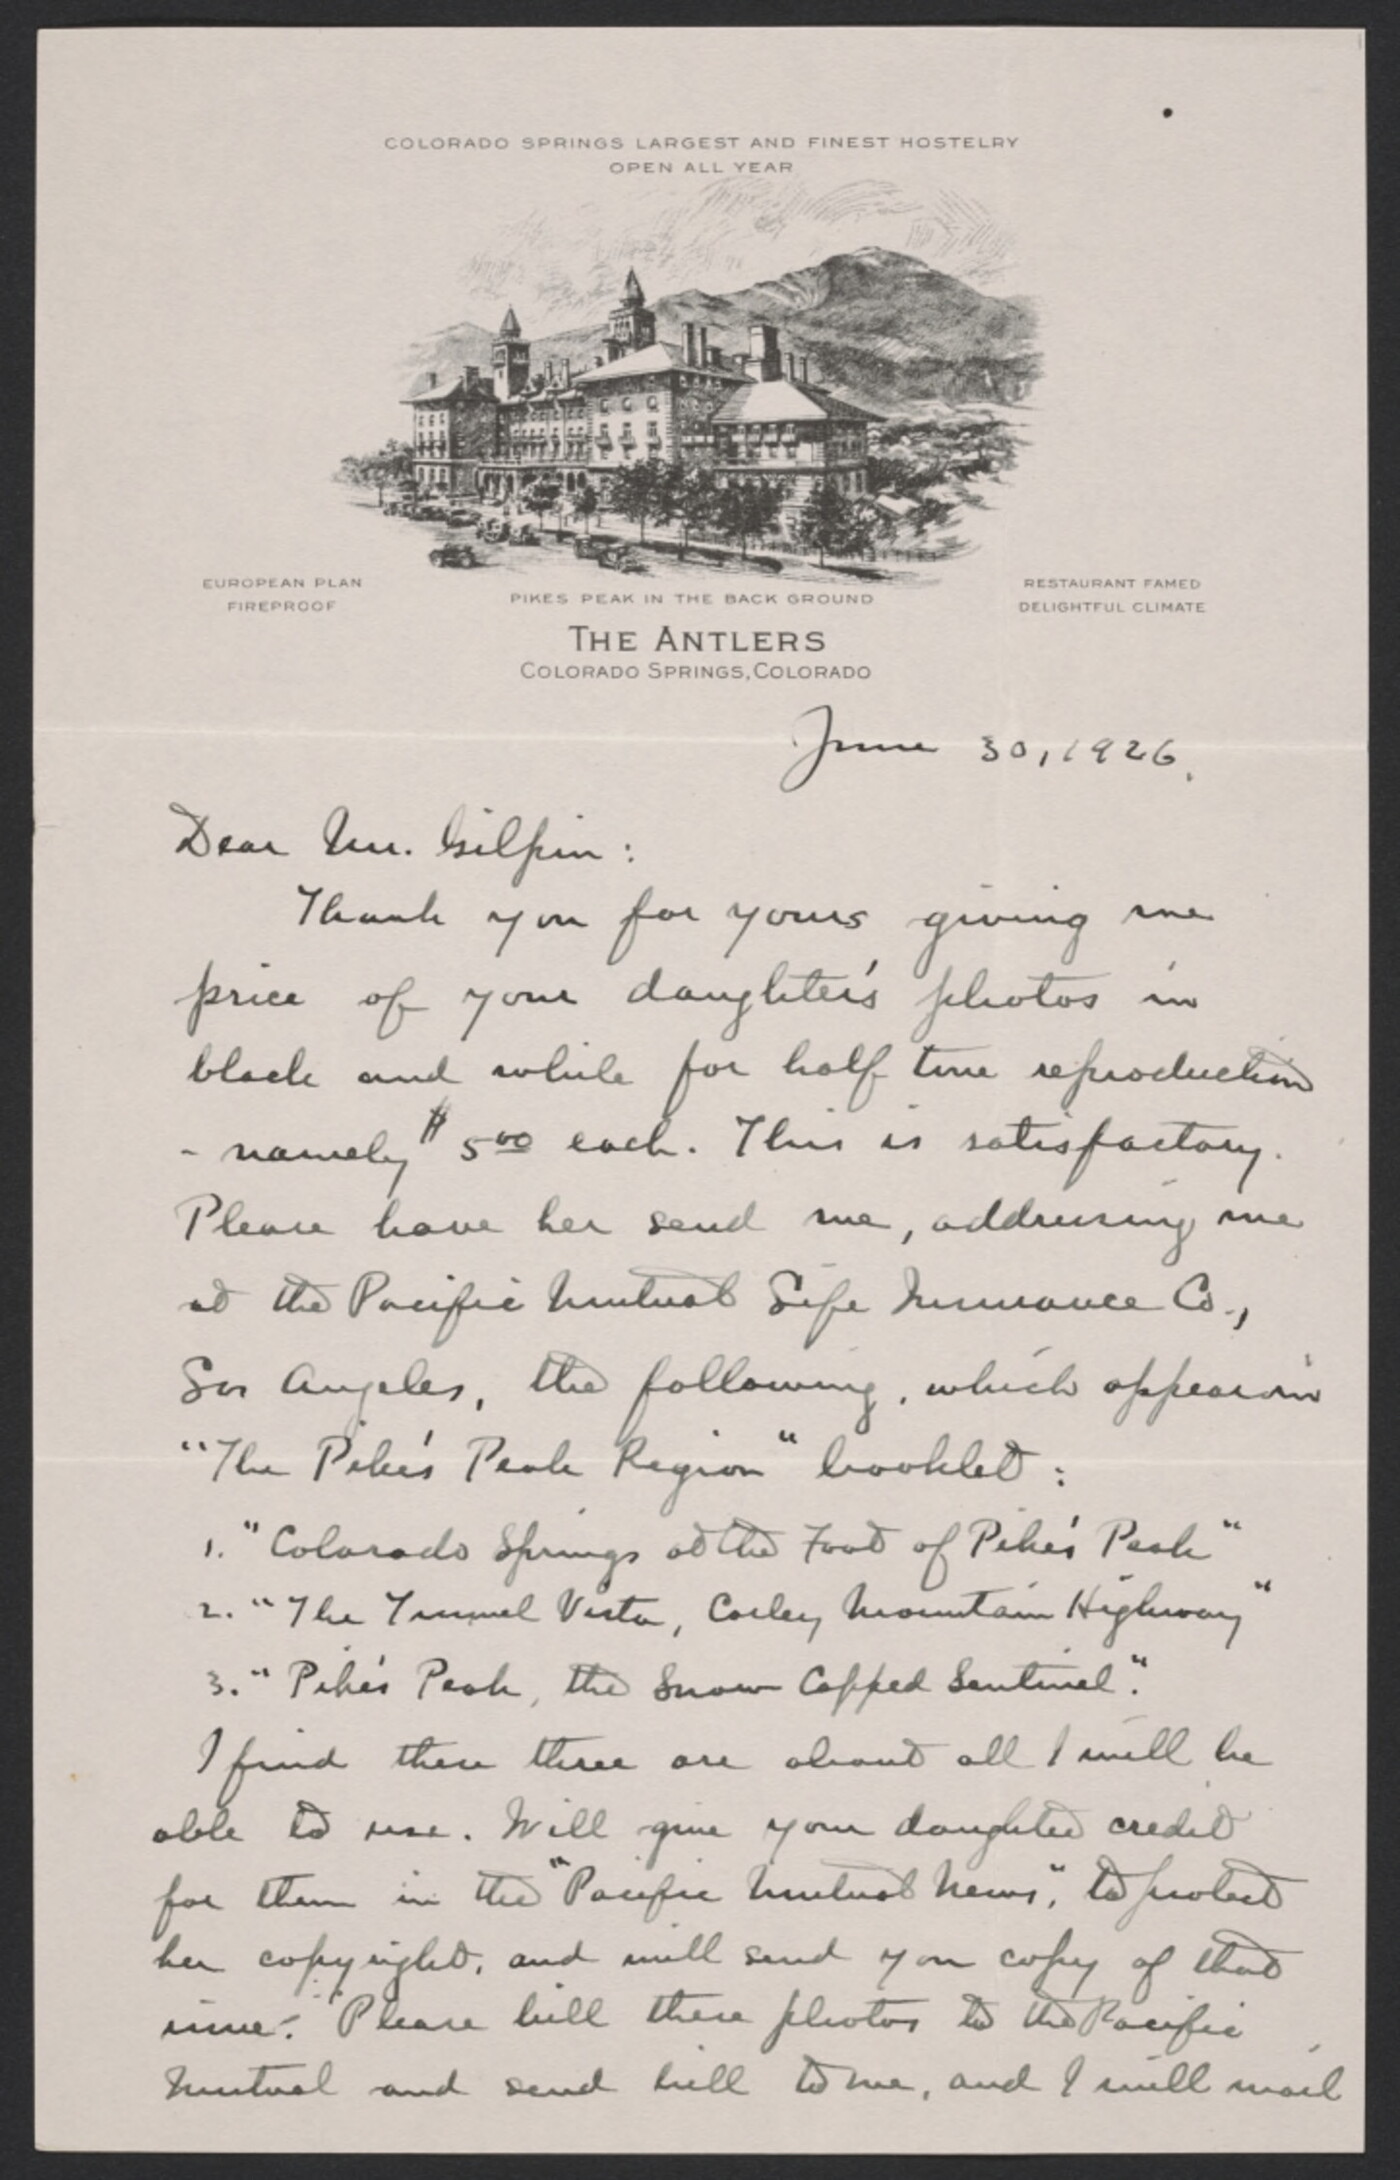 COLORADO SPRINGS LARGEST AND FINEST HOSTELRY
OPEN ALL YEAR
EUROPEAN PLAN
FIREPROOF
PIKES PEAK IN THE BACK GROUND
RESTAURANT FAMED
DELIGHTFUL CLIMATE
THE ANTLERS
COLORADO SPRINGS, COLORADO
June 30, 1926.
Dear Mr. Gilpin:
Thank you for yours giving me
price of your daughter's photos in
black and white for half tone reproduction
- namely $5.00 each. This is satisfactory.
Please have her send me, addressing me
at the Pacific Mutual Life Insurance Co.,
Los Angeles, the following, which appear in
"The Pike's Peak Region" booklet:
1. "Colorado Springs at the Foot of Pike's Peak"
2. "The Tunnel Vista, Corley Mountain Highway"
3. "Pike's Peak, the Snow Capped Sentinel".
I find these three are about all I will be
able to use. Will give your daughter credit
for them in the "Pacific Mutual News", to protect
her copyright, and will send you copy of that
issue. Please bill these photos to the Pacific
Mutual and send bill to me, and I will mail